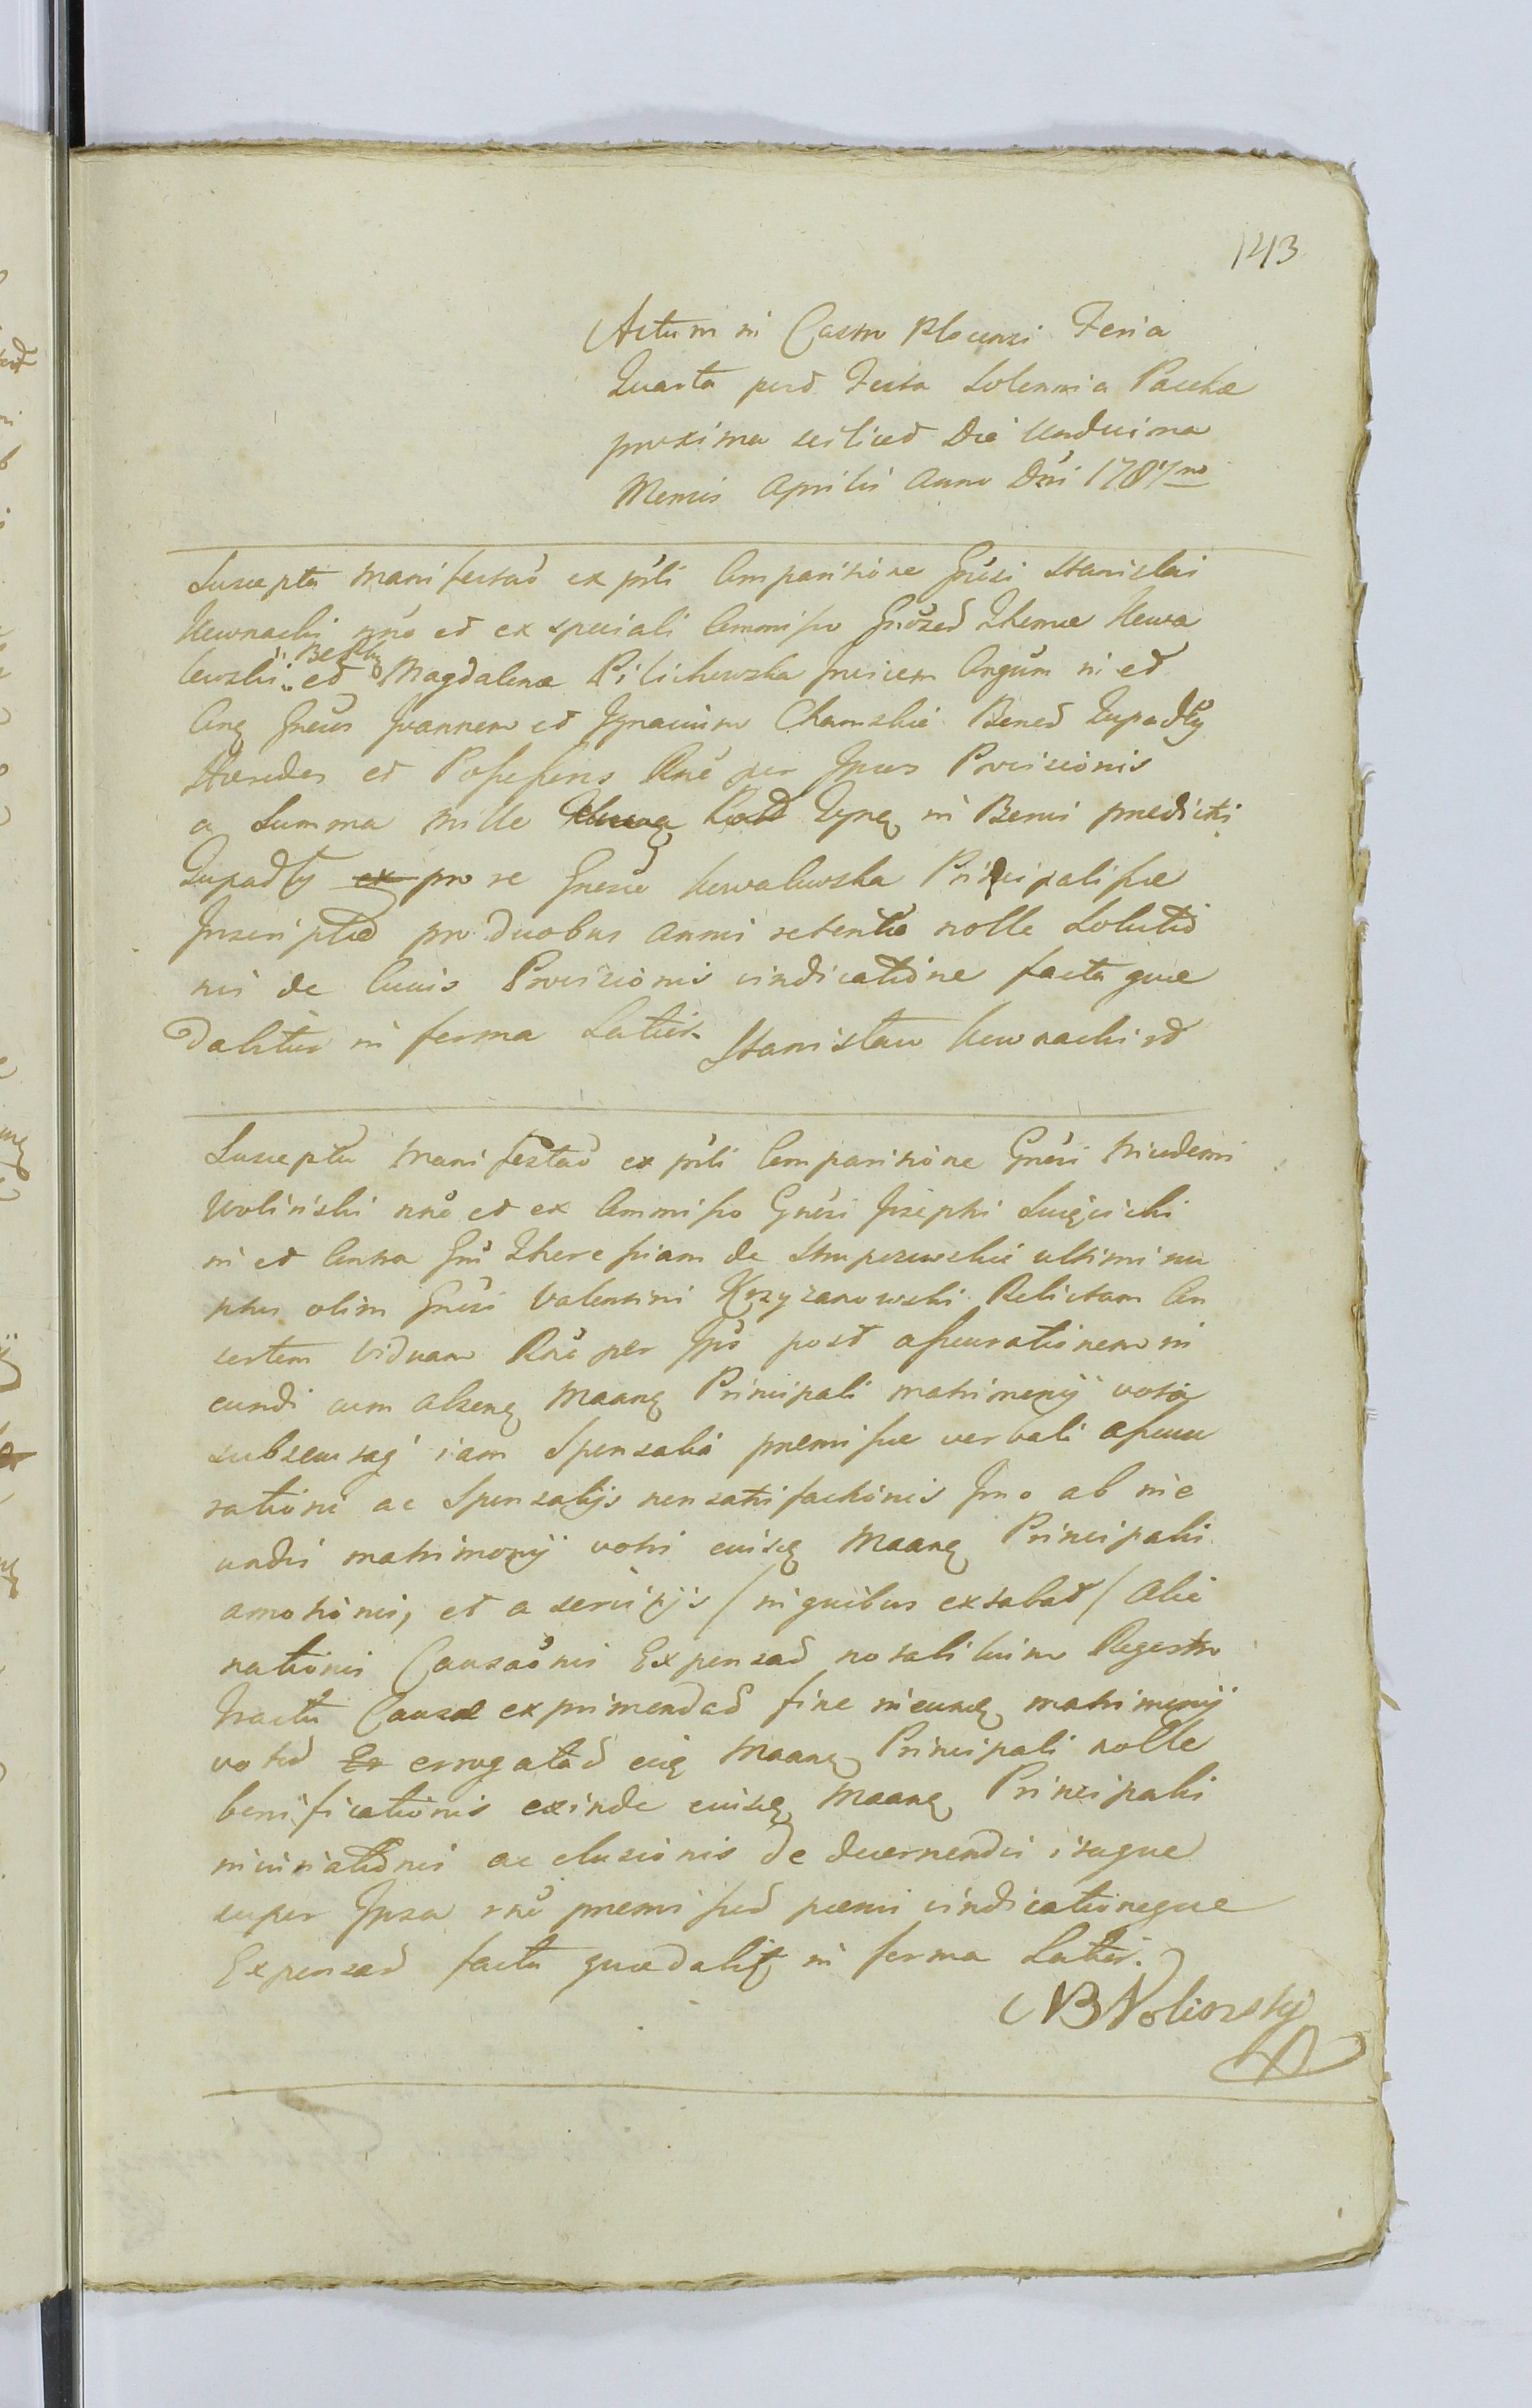 143
Actum in Castro Plocensi Feria
Quarta post Festa Solennia Paschae
proxima scilicet Die Undecima
Mensis Aprilis Anno Dni 1787mo
Suscepta Manifestaõ ex pñti Comparitione Gñosi Stanislai
Kownacki nñe et ex speciali Commisso Gñosed Thomae Kowa
lewski et Magdalena Pilichowska Conjugum in et
Cong Gñeos Joannem et Ignacium Chamskie Bonod Zupadły
Haeredes et Possessores Rne per Ipsos Provisionis
a Summa Mille Złnoq Pold Typq in Bonis praedictis
Zupadły pro re Gñosae Kowalewska Principalissae
Inscripted pro duobus annis retentae nolle Solutio
nis de Cuius Provisionis vindicatione facta quae
dabitur in forma Latiori Stanisław Kownacki rd
Suscepta Manifestaõ ex pñti Comparitione Gñosi Nicodemi
Woliński nñe et ex Commisso Gñosi Josephi Święcicki
in et Contra Gñe Theressiam de Strupczewskie ultimi nu
ptus olim Gñosi Valentini Krzyzanowski Relictam Con
sortem Viduam Rñe per Ipso post assecurationem in
eundi cum alseng Maang Principali matrimonij votis
subsecutaq iam Sponsalia praemissae verbali assecu
rationi ac Sponsalijs non satisfactionis Imo ab ine
undis matrimonij votis eiusq Maang Principalis
amotionis, et a servitijs / in quibus extabat / Alie
nationis Causaõnis Expensad notabilium Regestro
tractu Causae exprimendad fine ineundq matrimonij
votod erogatad eiq Maang Principali nolle
bonificationis exinde eiusq Maang Principalis
iniuriationis ac elusionis de decernendis itaque
super Ipsa rñe praemissod poenis vindicationeque
Expensad facta quae dabitq in forma Latiori.
NB Wolinskij